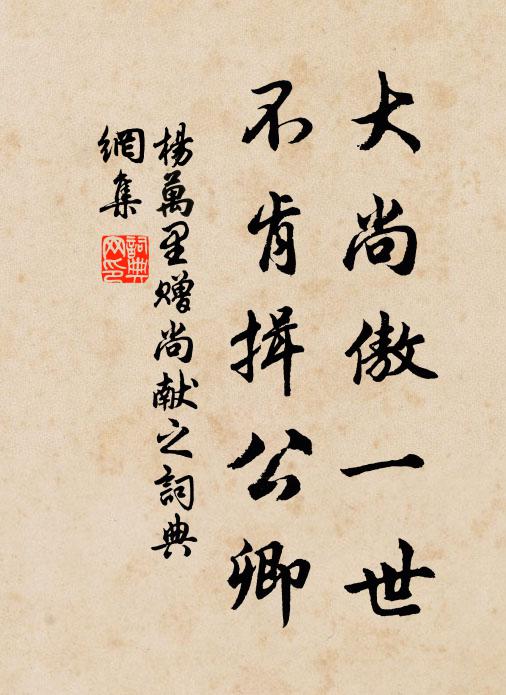 大尚傲一世
不肯揖公卿
楊萬里贈尚献之詞典
網集
詞典
网印